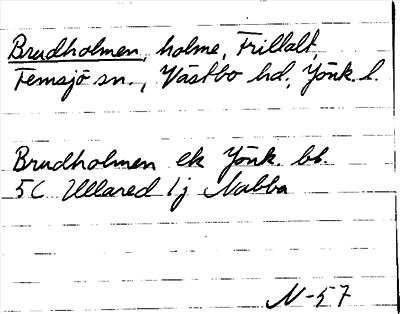 Brudholmen, holme, Frillalt,
Femsjö sn., Västbo hd, Jönk. l.
Brudholmen ek Jönk. bl.
5C Ullared 1j Nabba
N-57